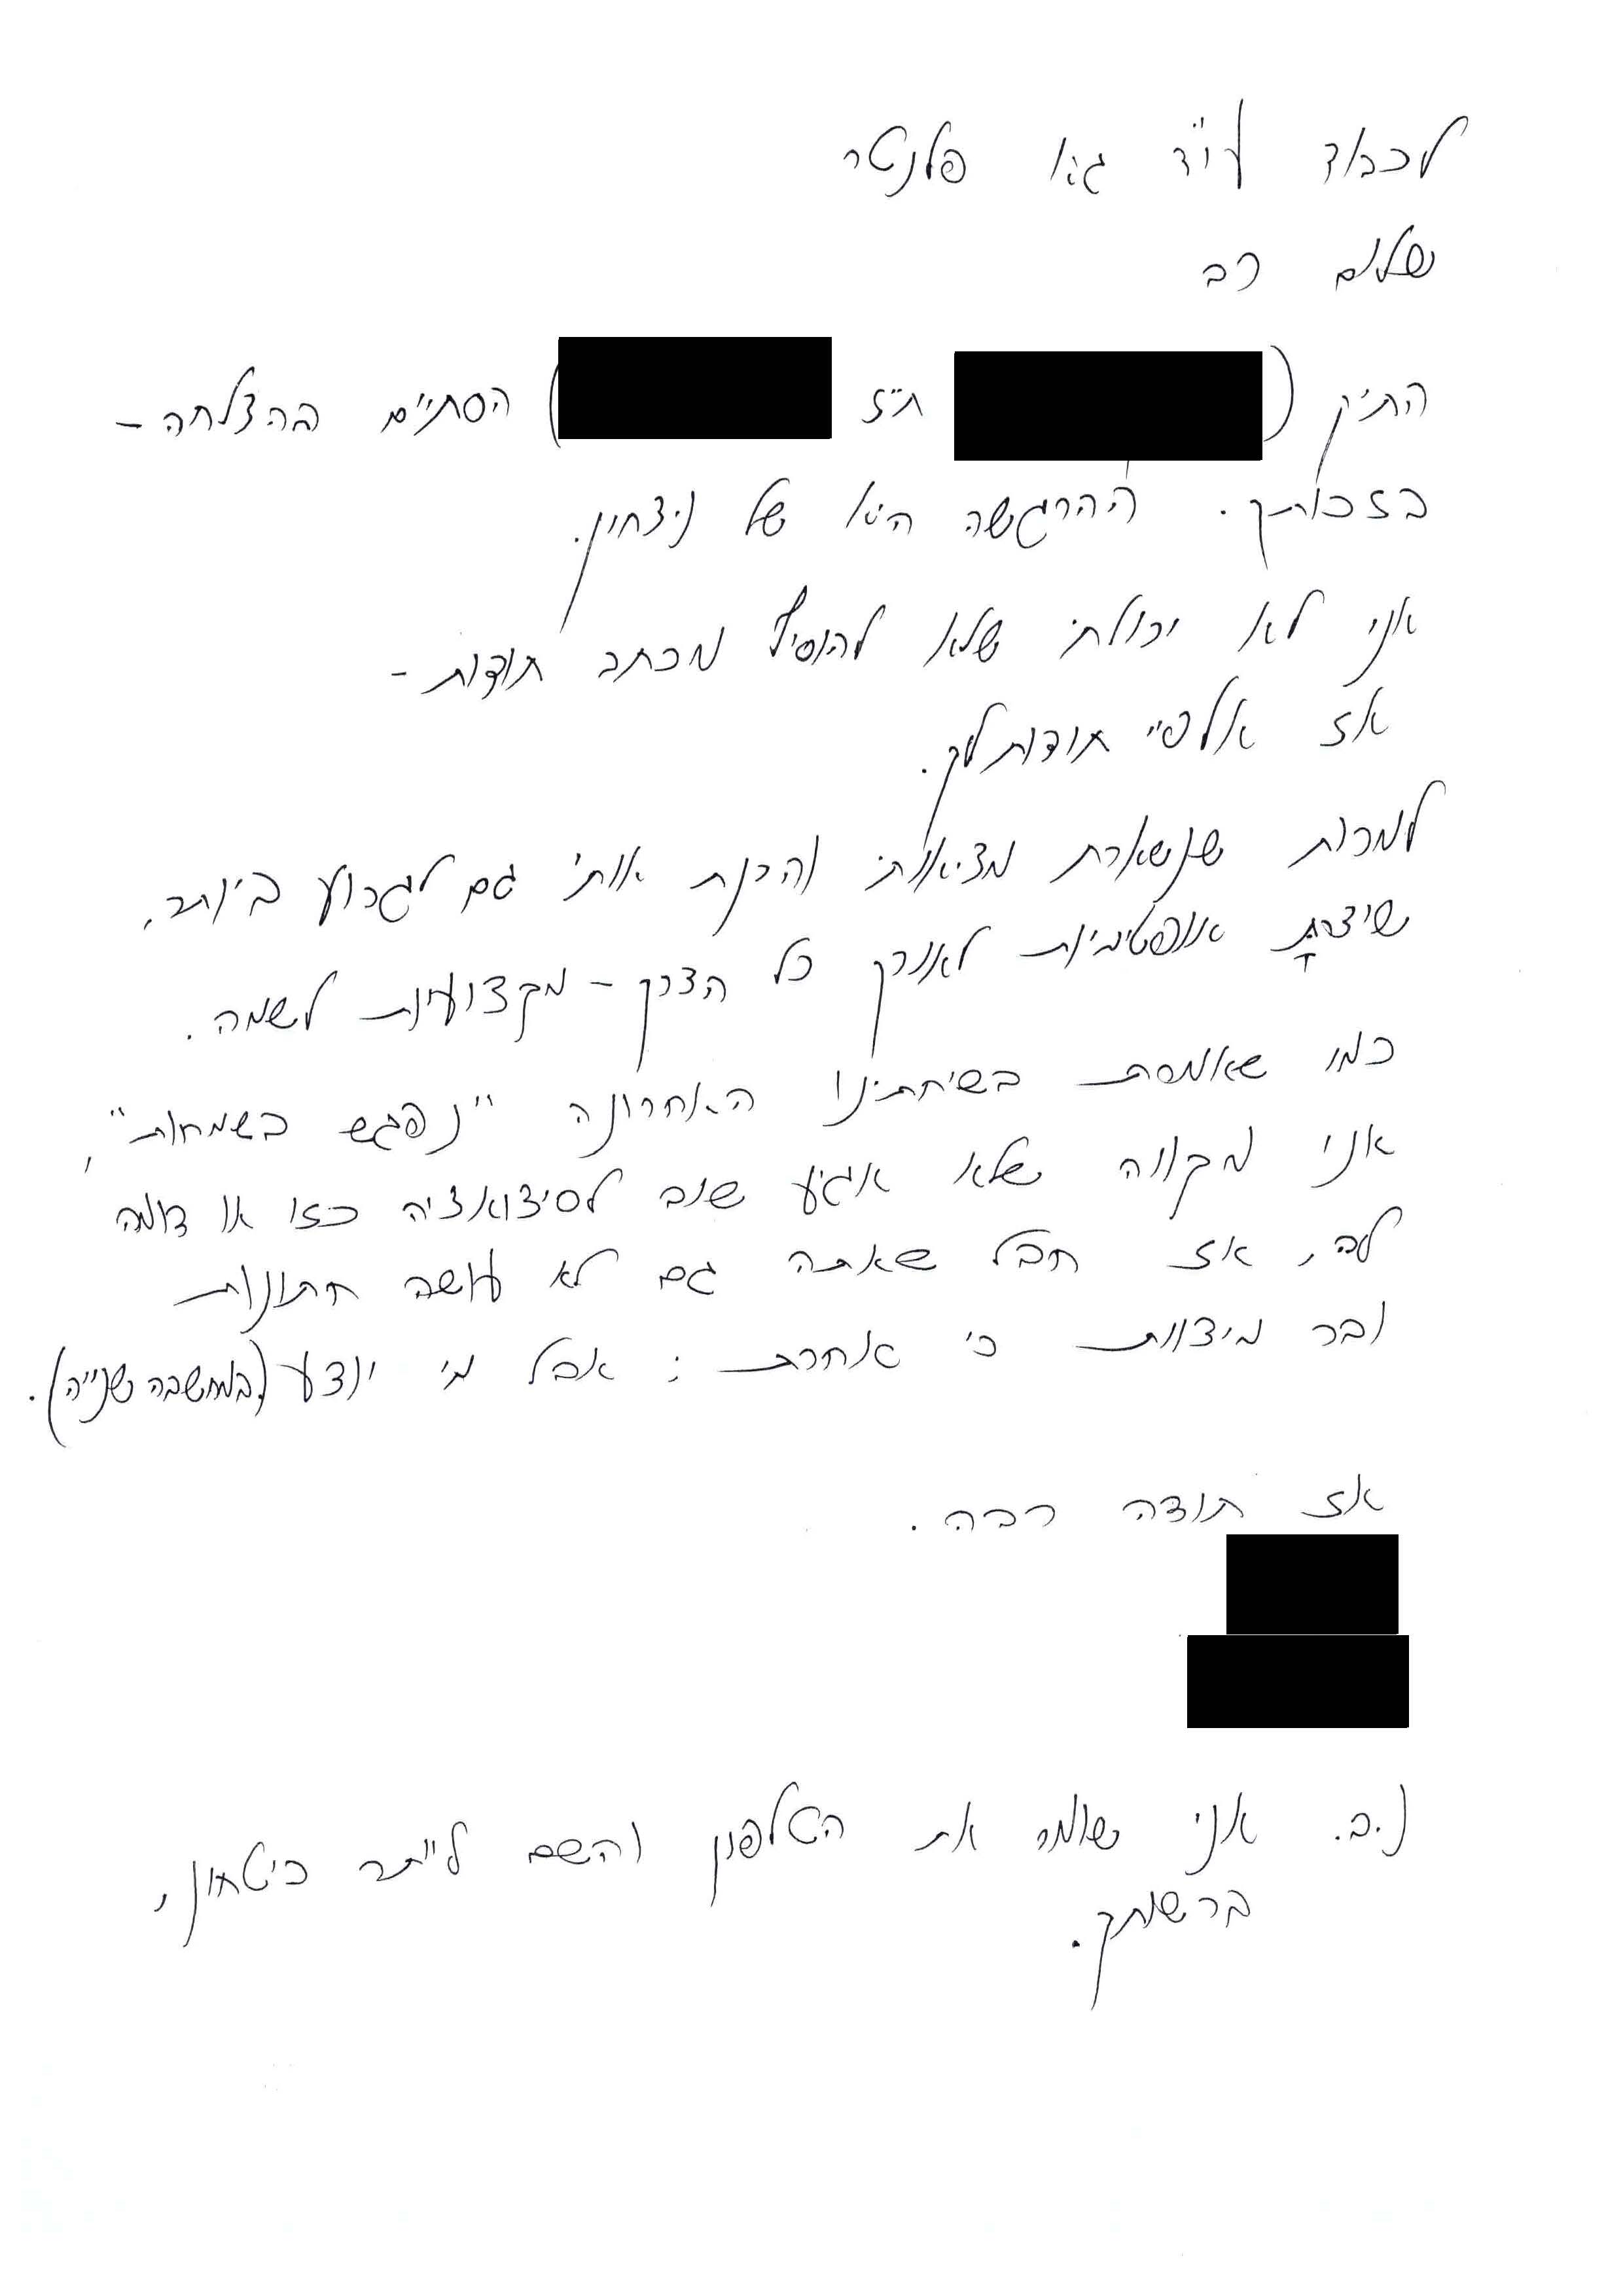 לכבוד עו"ד גיא פלנטר
שלום רב
התיק ( ת"ז ) הסתיים בהצלחה -
בזכותך. ההרגשה היא של ניצחון.
אני לא יכולתי שלא להוסיף מכתב תודות -
אז אלפי תודות לך.
למרות שנשארת מציאותי והכנת אותי גם לגרוע ביותר,
שיצרת אופטימיות לאורך כל הדרך - מקצועיות לשמה.
כמו שאמרת בשיחתינו האחרונה "נפגש בשמחות",
אני מקווה שלא אגיע שוב לסיטואציה כזו או דומה
לה, אז חבל שאתה גם לא עושה חתונות
ובר מיצוות כי אחרת ; אבל מי יודע (במחשבה שנייה).
אז תודה רבה.
נ.ב. אני שומר את הטלפון והשם לייתר ביטחון,
ברשותך.